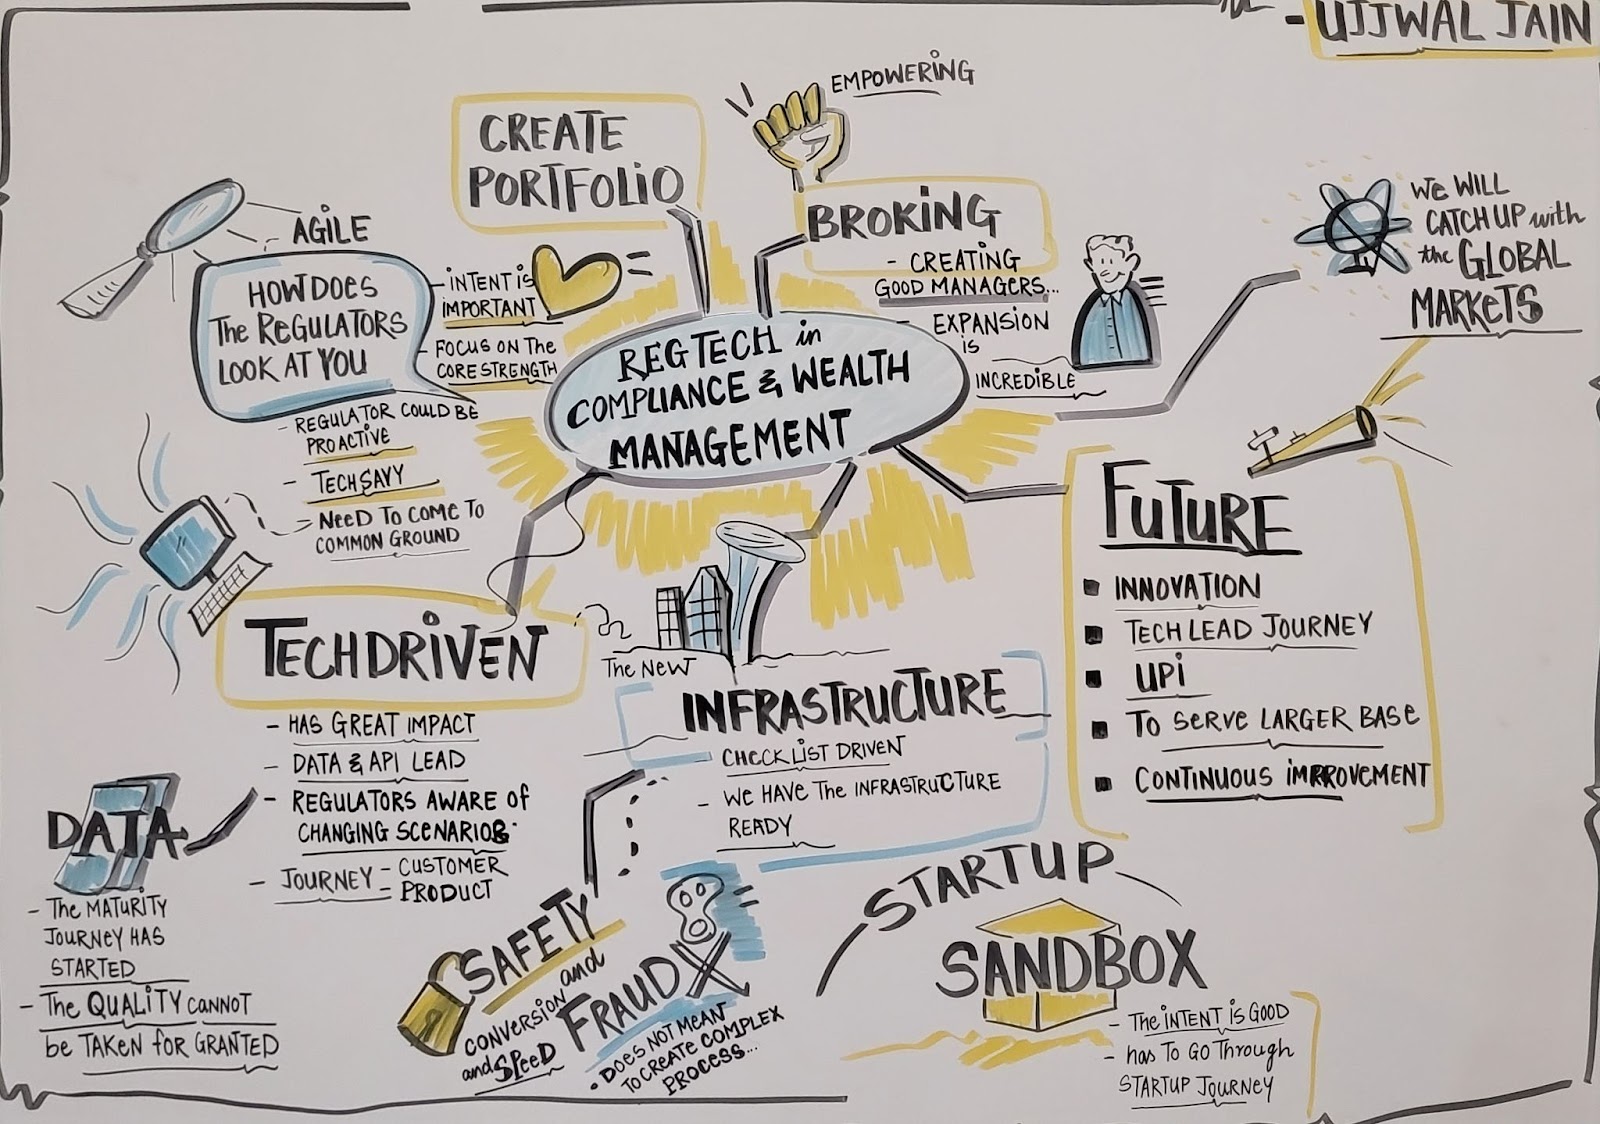 - UJJWAL JAIN
EMPOWERING
CREATE
PORTFOLIO
BROKING
- CREATING
GOOD MANAGERS...
- EXPANSION
IS
INCREDIBLE
WE WILL
CATCH UP with
the GLOBAL
MARKETS
AGILE
HOW DOES
The REGULATORS
LOOK AT YOU
- INTENT IS
IMPORTANT
- FOCUS ON The
CORE STRENGTH
- REGULATOR COULD BE
PROACTIVE
- TECHSAVY
= NEED TO COME TO
COMMON GROUND
REGTECH in
COMPLIANCE & WEALTH
MANAGEMENT
FUTURE
▪ INNOVATION
▪ TECH LEAD JOURNEY
▪ UPI
▪ TO SERVE LARGER BASE
▪ CONTINUOUS IMPROVEMENT
TECHDRIVEN
- HAS GREAT IMPACT
- DATA & API LEAD
- REGULATORS AWARE OF
CHANGING SCENARIOS
- JOURNEY - CUSTOMER
= PRODUCT
The NEW
INFRASTRUCTURE
- CHECKLIST DRIVEN
- WE HAVE The INFRASTRUCTURE
READY
DATA
- The MATURITY
JOURNEY HAS
STARTED
- The QUALITY CANNOT
be TAKEN FOR GRANTED
SAFETY
and
FRAUD
CONVERSION
and SPEED
• DOES NOT MEAN
TO CREATE COMPLEX
PROCESS...
STARTUP
SANDBOX
- The INTENT IS GOOD
- has TO GO Through
STARTUP JOURNEY